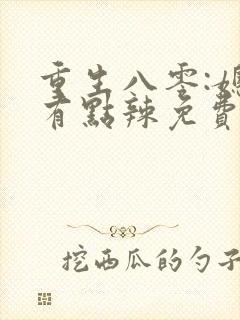 重生八零:媳
有點辣免費
挖西瓜的勺子